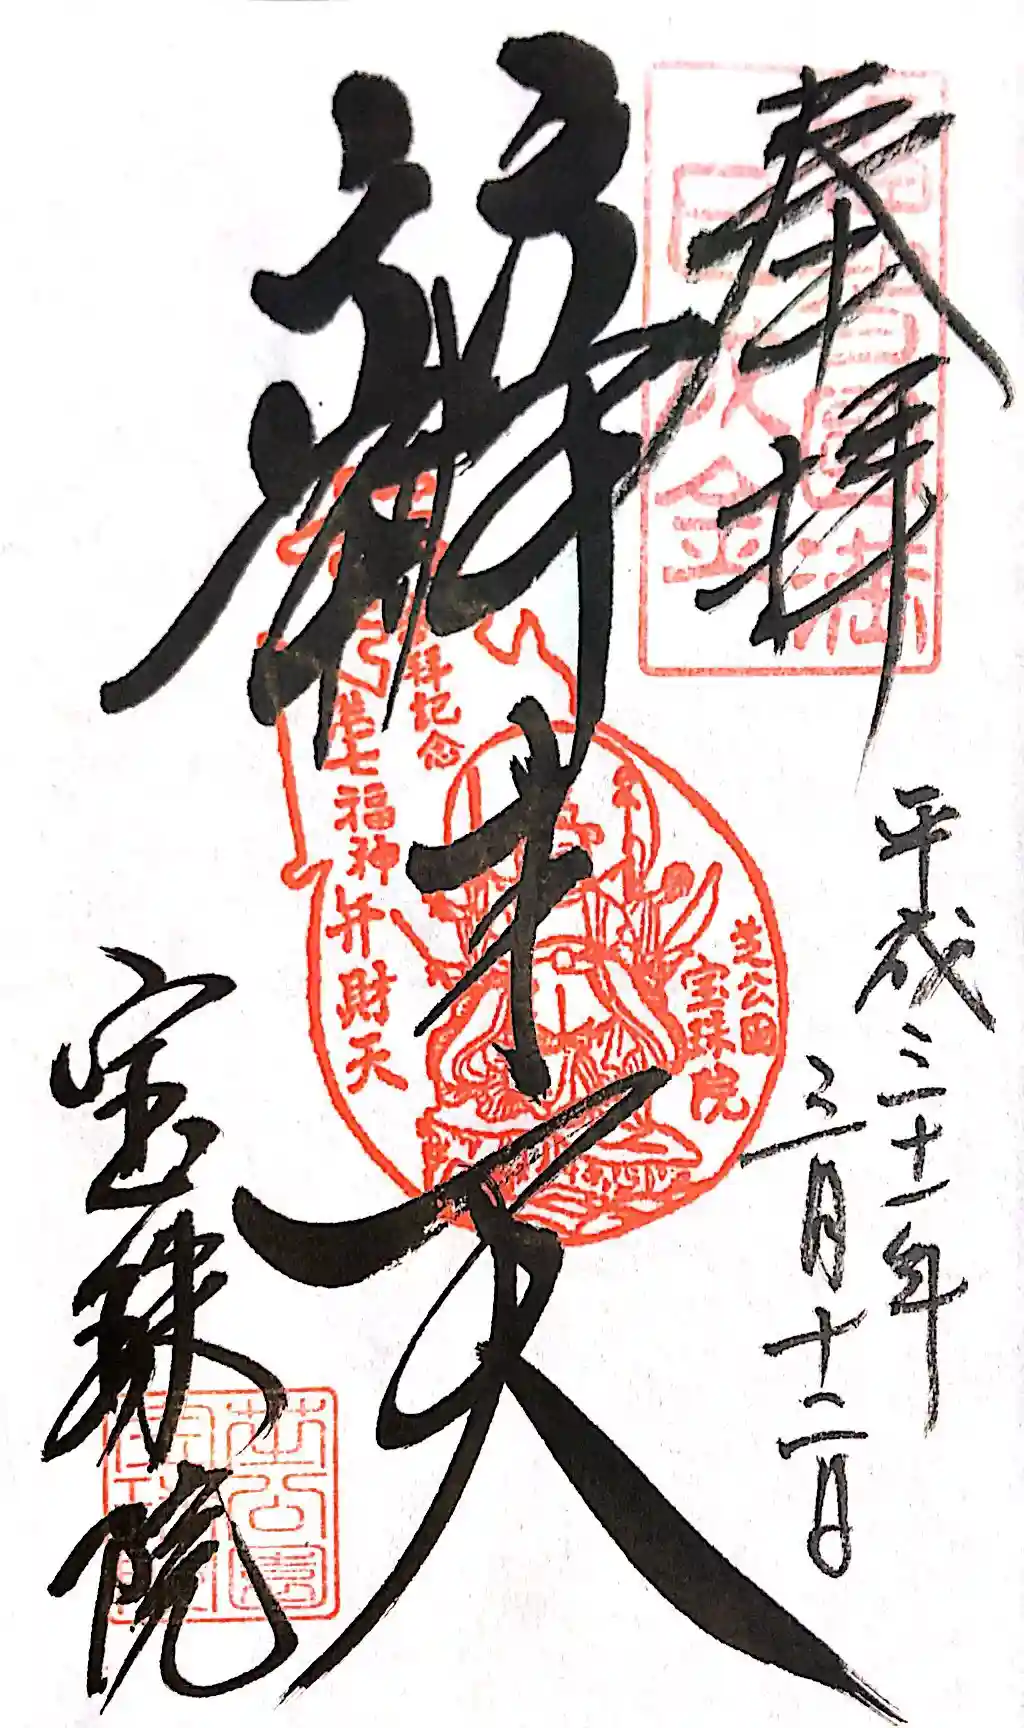 奉拝
平成三十一年
三月十二日
辨才天
拝記念
七福神弁財天
芝公園
宝珠院
宝珠院
芝公園